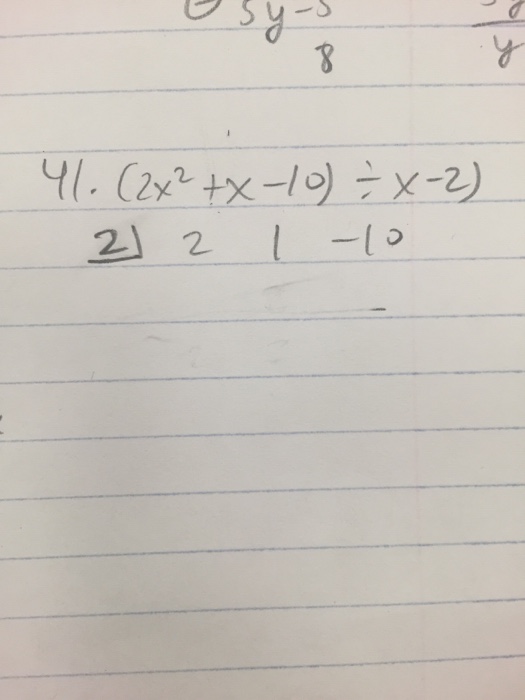 5y-5
8
y
41. (2x² +x -10) ÷ x-2)
2⌋ 2 1 -10